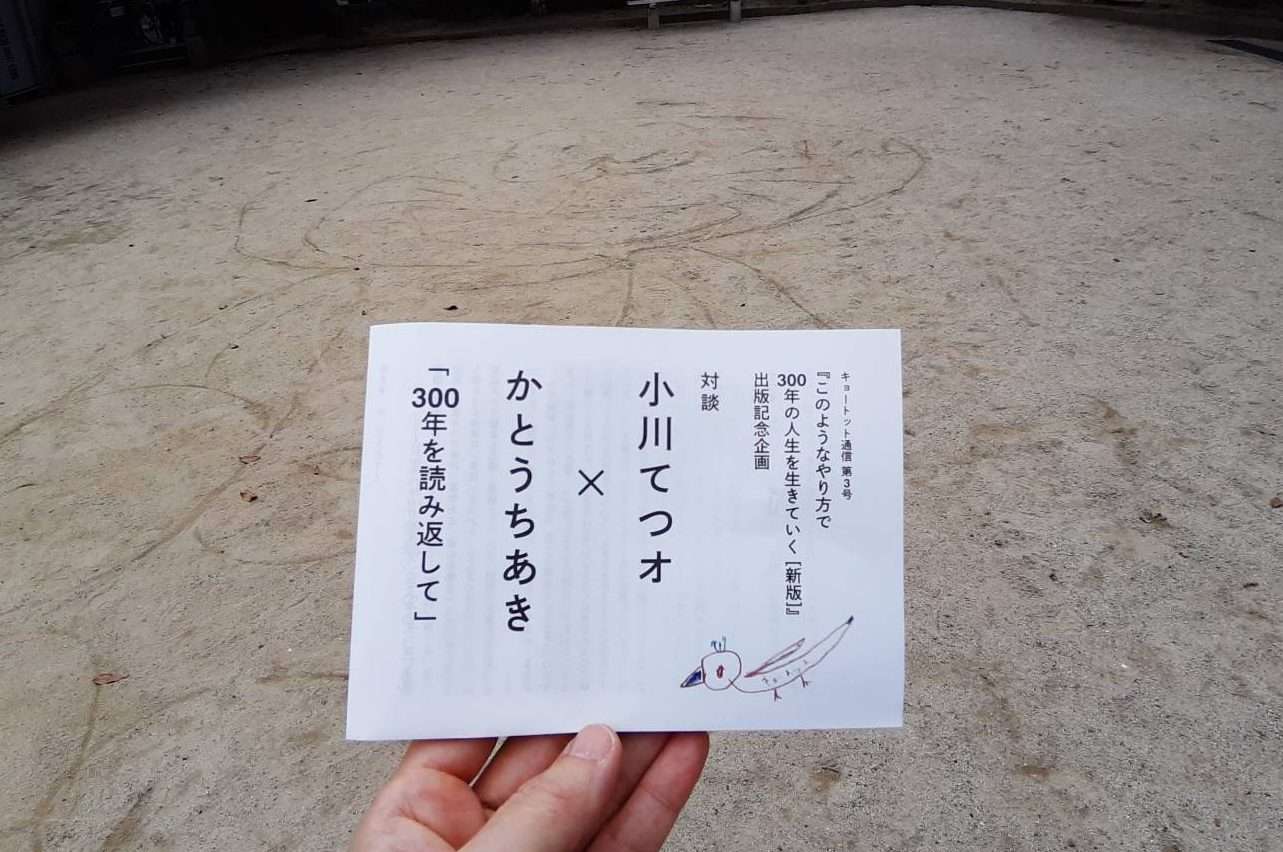 キョートット通信 第3号
『このようなやり方で
300年の人生を生きていく［新版］』
出版記念企画
対談
小川てつオ
×
かとうちあき
「300年を読み返して」